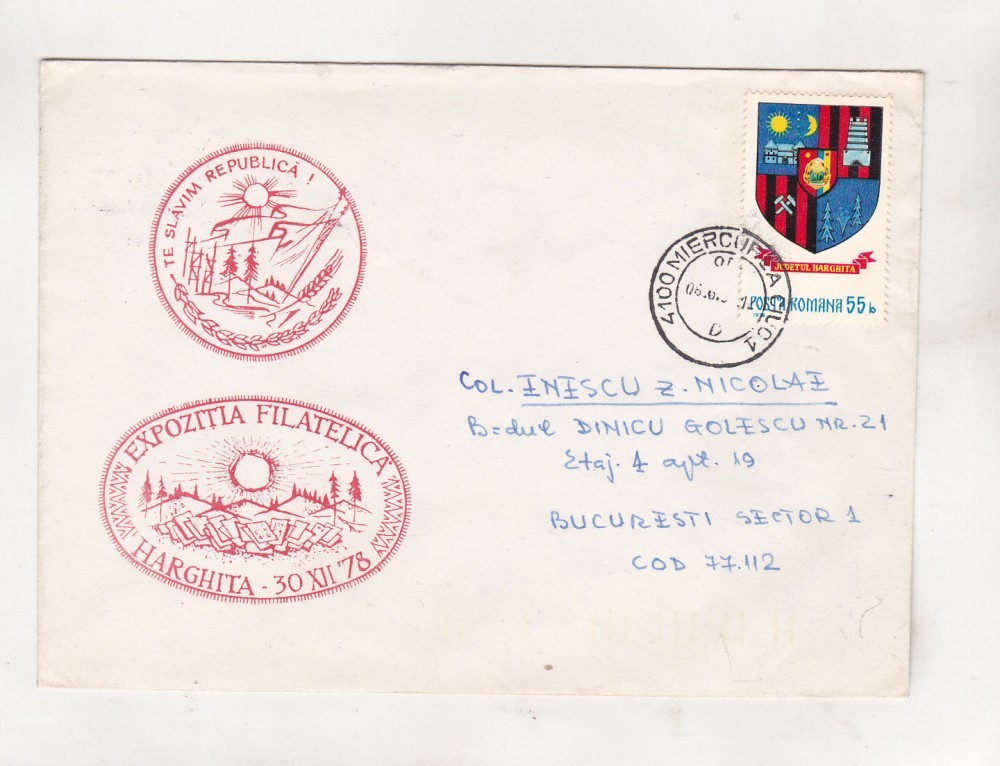 TE SLĂVIM REPUBLICĂ !
EXPOZIȚIA FILATELICĂ
HARGHITA - 30 XII '78
JUDEȚUL HARGHITA
POSTA ROMANA 55 b
4100 MIERCUREA CIUC 1
D
COL. INESCU Z. NICOLAE
B-dul DINICU GOLESCU NR. 21
Etaj. 4 apt. 19
BUCURESTI SECTOR 1
COD 77.112